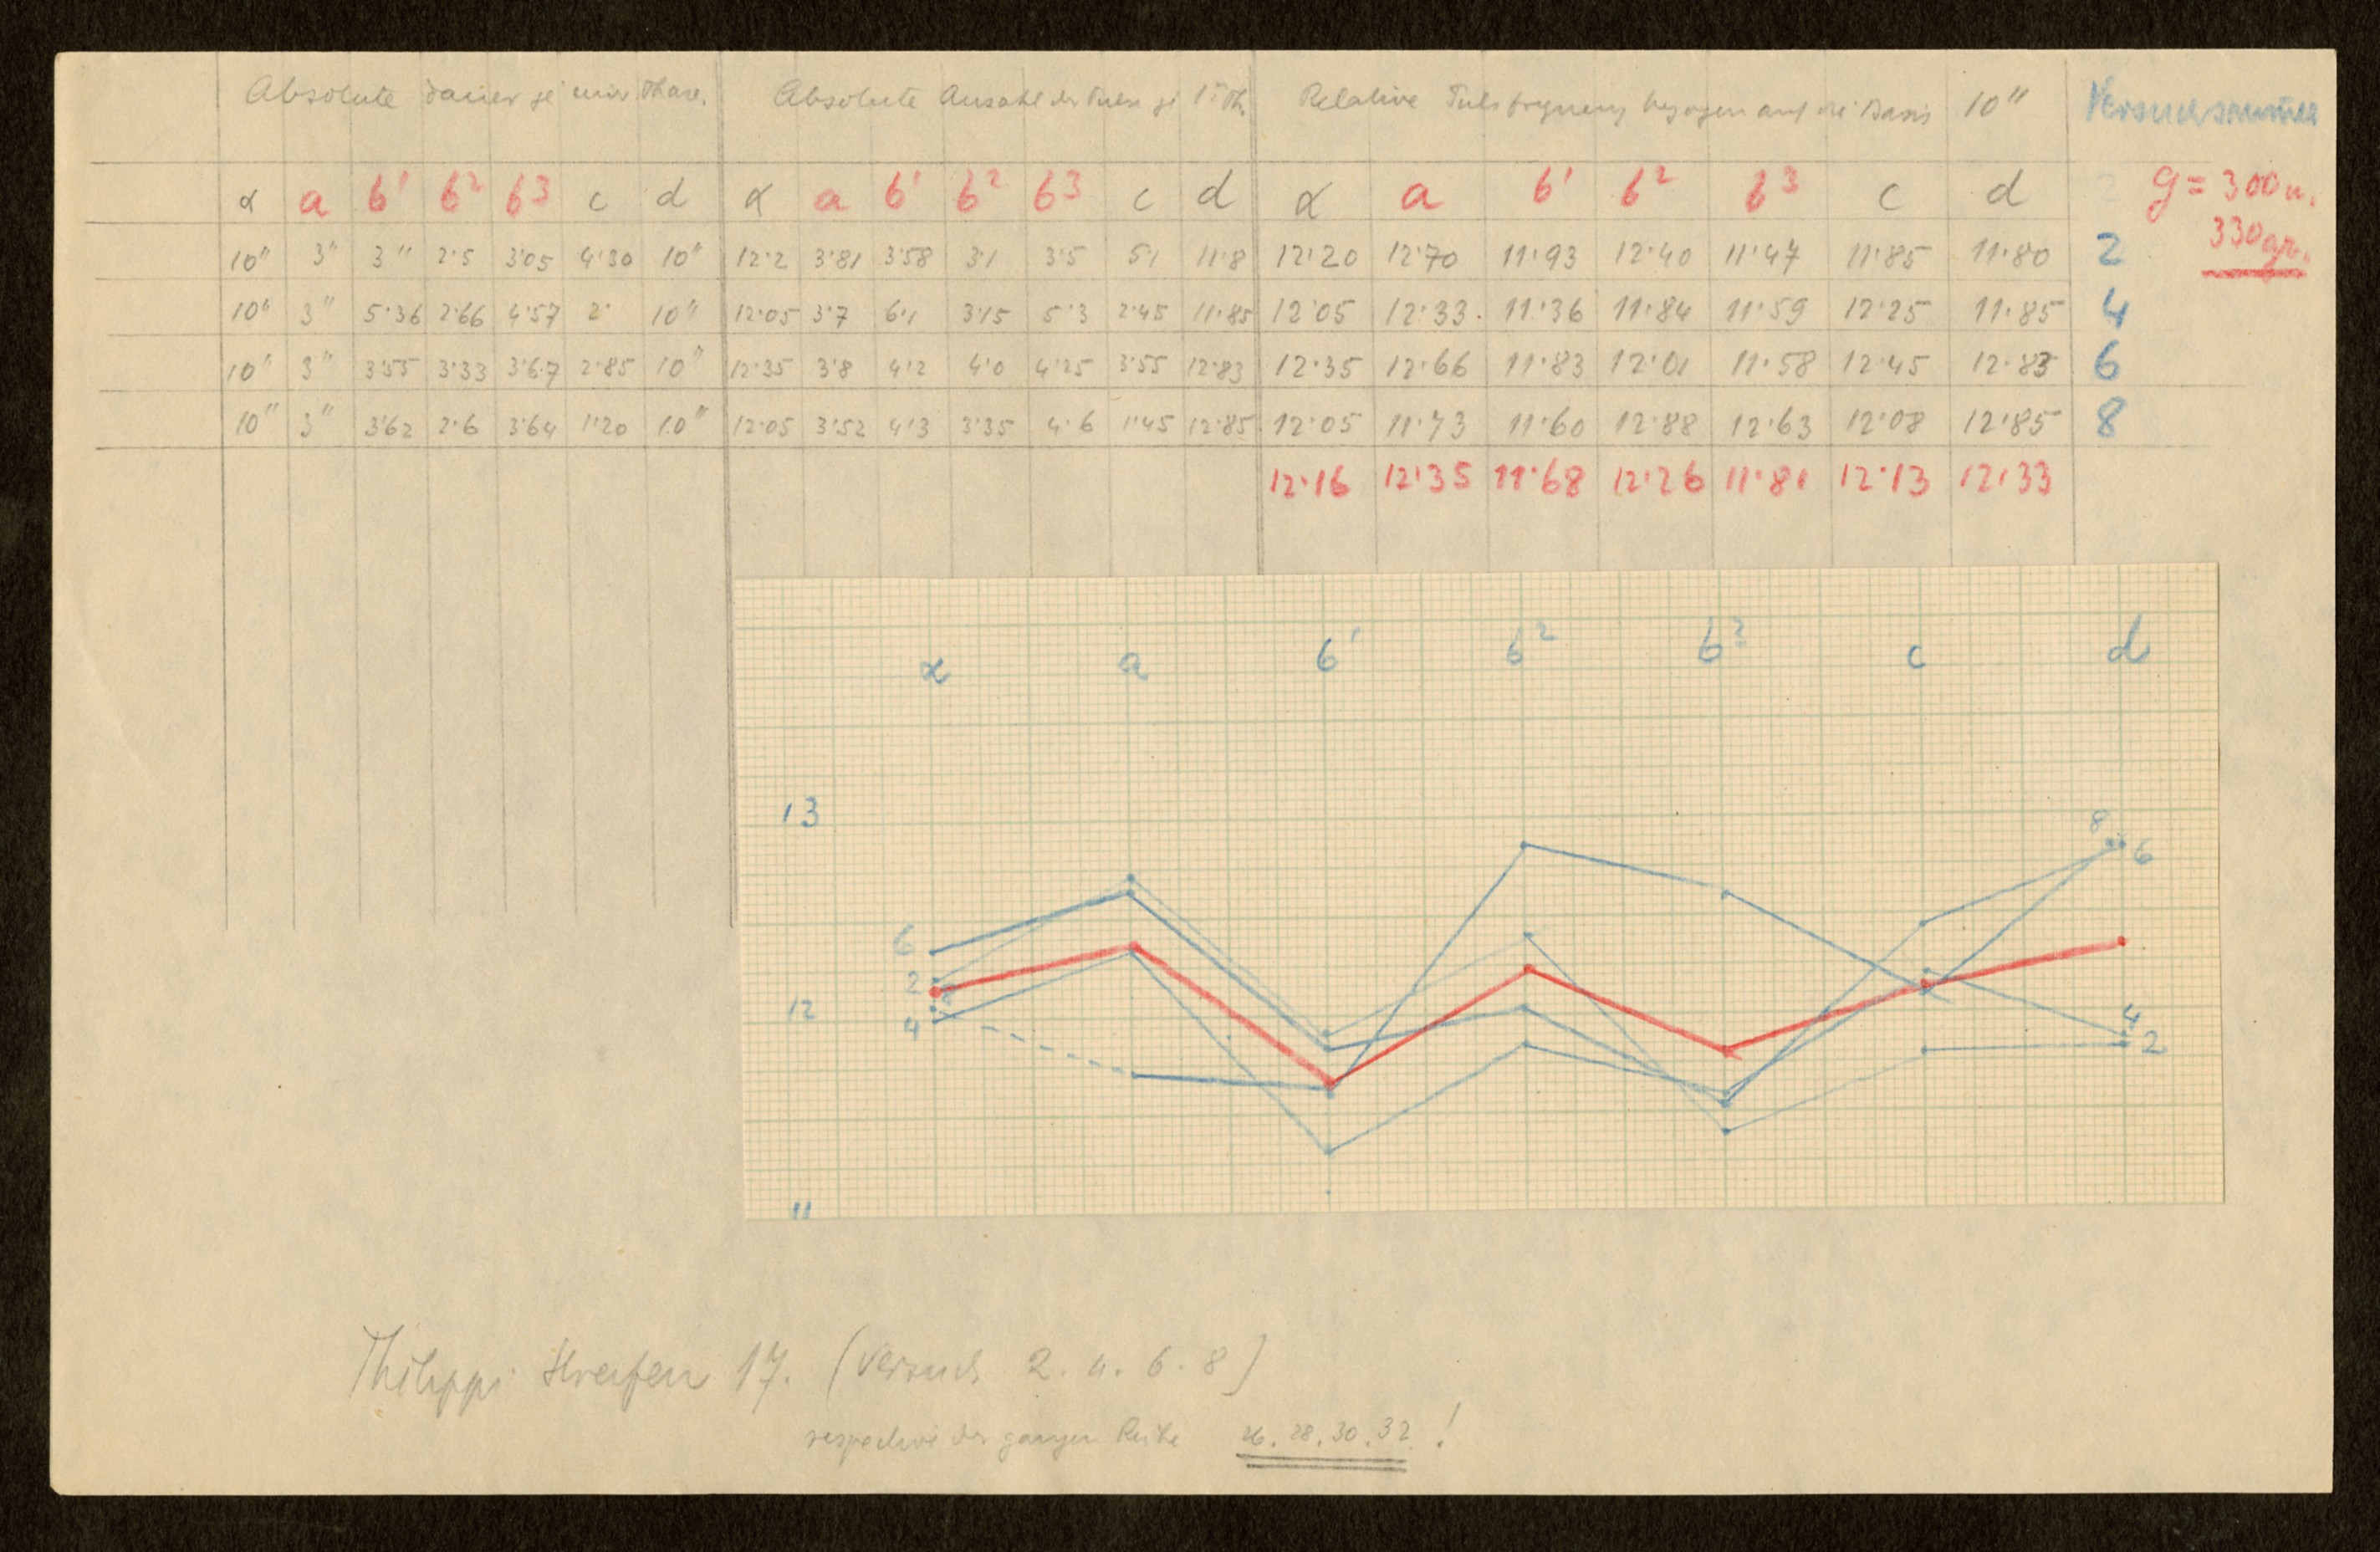 Absolute Dauer je einer Phase. Absolute Anzahl der Pulse je 1 Ph. Relative Pulsfrequenz bezogen auf die Basis 10" Versuchsnummer
α a b¹ b² b³ c d α a b¹ b² b³ c d α a b¹ b² b³ c d g = 300 u.
330 gr.
10" 3" 3" 2·5 3·05 4·30 10" 12·2 3·81 3·58 3·1 3·5 5·1 11·8 12·20 12·70 11·93 12·40 11·47 11·85 11·80 2
10" 3" 5·36 2·66 4·57 2· 10" 12·05 3·7 6·1 3·15 5·3 2·45 11·85 12·05 12·33 11·36 11·84 11·59 12·25 11·85 4
10" 3" 3·55 3·33 3·67 2·85 10" 12·35 3·8 4·2 4·0 4·25 3·55 12·83 12·35 12·66 11·83 12·01 11·58 12·45 12·83 6
10" 3" 3·62 2·6 3·64 1·20 10" 12·05 3·52 4·3 3·35 4·6 1·45 12·85 12·05 11·73 11·60 12·88 12·63 12·08 12·85 8
12·16 12·35 11·68 12·26 11·81 12·13 12·33
α a b¹ b² b³ c d
13
8
6
6
2 8
12
4
4
2
11
Philippi Streifen 17. (Versuch 2. 4. 6. 8)
respective der ganzen Reihe 26. 28. 30. 32. !